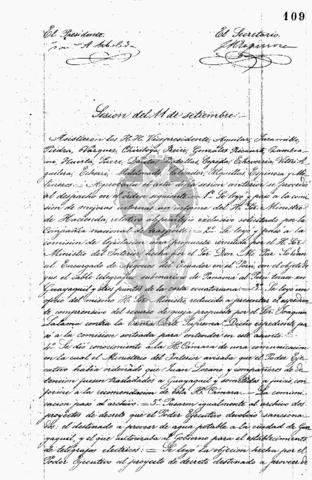 109
El Presidente. El Secretario.
Sesion del 11 de setiembre.
Asistieron los H.H. Vicepresidente, Aguilar, Jaramillo,
Piedra, Vázquez, Chiriboga, Freire, González,
Huerta,
Echeverria,
Espinosa y
Aprobada el acta de la sesion anterior se procedió
al despacho en el órden siguiente: 1º Se leyó y pasó a la
comision de un informe del H. Sor Ministro
de Hacienda, relativo al privilegio exclusivo solicitado por la
Compañia nacional de 2º Se leyó y pasó a la
comision de legislacion una propuesta remitida por el H. Sor
Ministro del Interior, hecha por el Sor Don
Encargado de Negocios del Ecuador en el Perú, con el objeto de
que el cable telegráfico submarino de Panamá al Perú toque en
Guayaquil y otros puntos de la costa ecuatoriana. 3º Se leyó un
oficio del mismo H. Sor Ministro, reducido a presentar el espedien-
te comprensivo del recurso de queja propuesto por el Sor Joaquin
Lalama contra la Corte Suprema. Dicho espediente pa-
só a la comision nombrada para entender en este asunto.
4º Se dió conocimiento a la H. Cámara de una comunicacion
en la cual el Ministerio del Interior avisaba que el Poder Eje-
cutivo habia ordenado que Juan Lozano y compañeros de de-
tension fuesen trasladados a Guayaquil y sometidos a juicio, con-
forme a la recomendacion de esta H. Cámara. La comuni-
cacion pasó al archivo. 5º Pasaron igualmente al archivo dos
proyectos de decreto que el Poder Ejecutivo devolvió sanciona-
dos: el destinado a proveer de agua potable a la ciudad de Gua-
yaquil, y el que autorizaba al Gobierno para el establecimiento
de telégrafos eléctricos. Se leyó la objecion hecha por el
Poder Ejecutivo al proyecto de decreto destinado a proveer de